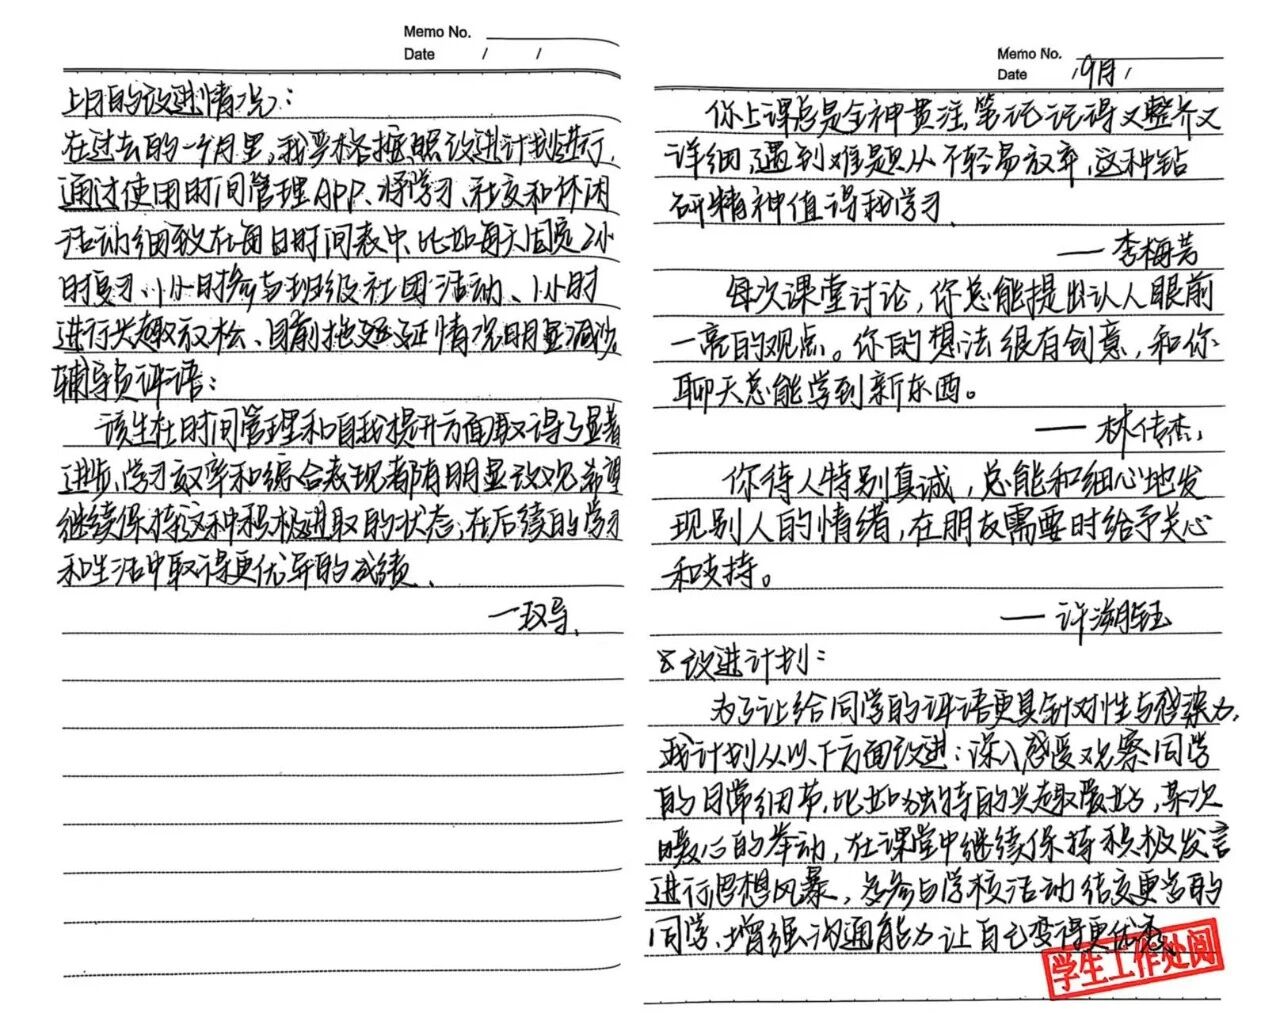 Memo No.
Date / /
上月的改进情况:
在过去的一个月里,我严格按照改进计划进行,
通过使用时间管理APP、将学习、社交和休闲
活动细致在每日时间表中、比如每天固定2小
时复习、1小时参与班级社团活动、1小时
进行兴趣放松、目前拖延症情况明显减少
辅导员评语:
该生在时间管理和自我提升方面取得了显著
进步,学习效率和综合表现都有明显改观,希望
继续保持这种积极进取的状态,在后续的学习
和生活中取得更优异的成绩、
一双导、
Memo No.
Date /9月/
你上课总是全神贯注,笔记记得又整齐又
详细,遇到难题从不轻易放弃,这种钻
研精神值得我学习、
——李梅芳
每次课堂讨论,你总能提出让人眼前
一亮的观点。你的想法很有创意,和你
聊天总能学到新东西。
——林传杰
你待人特别真诚,总能和细心地发
现别人的情绪,在朋友需要时给予关心
和支持。
——许
8改进计划:
为了让给同学的评语更具针对性与感染力,
我计划从以下方面改进:深入感受观察同学
的日常细节,比如独特的兴趣爱好,某次
暖心的举动,在课堂中继续保持积极发言
进行思想风暴,多参与学校活动结交更多的
同学、增强沟通能力让自己变得更优秀、
学生工作处阅